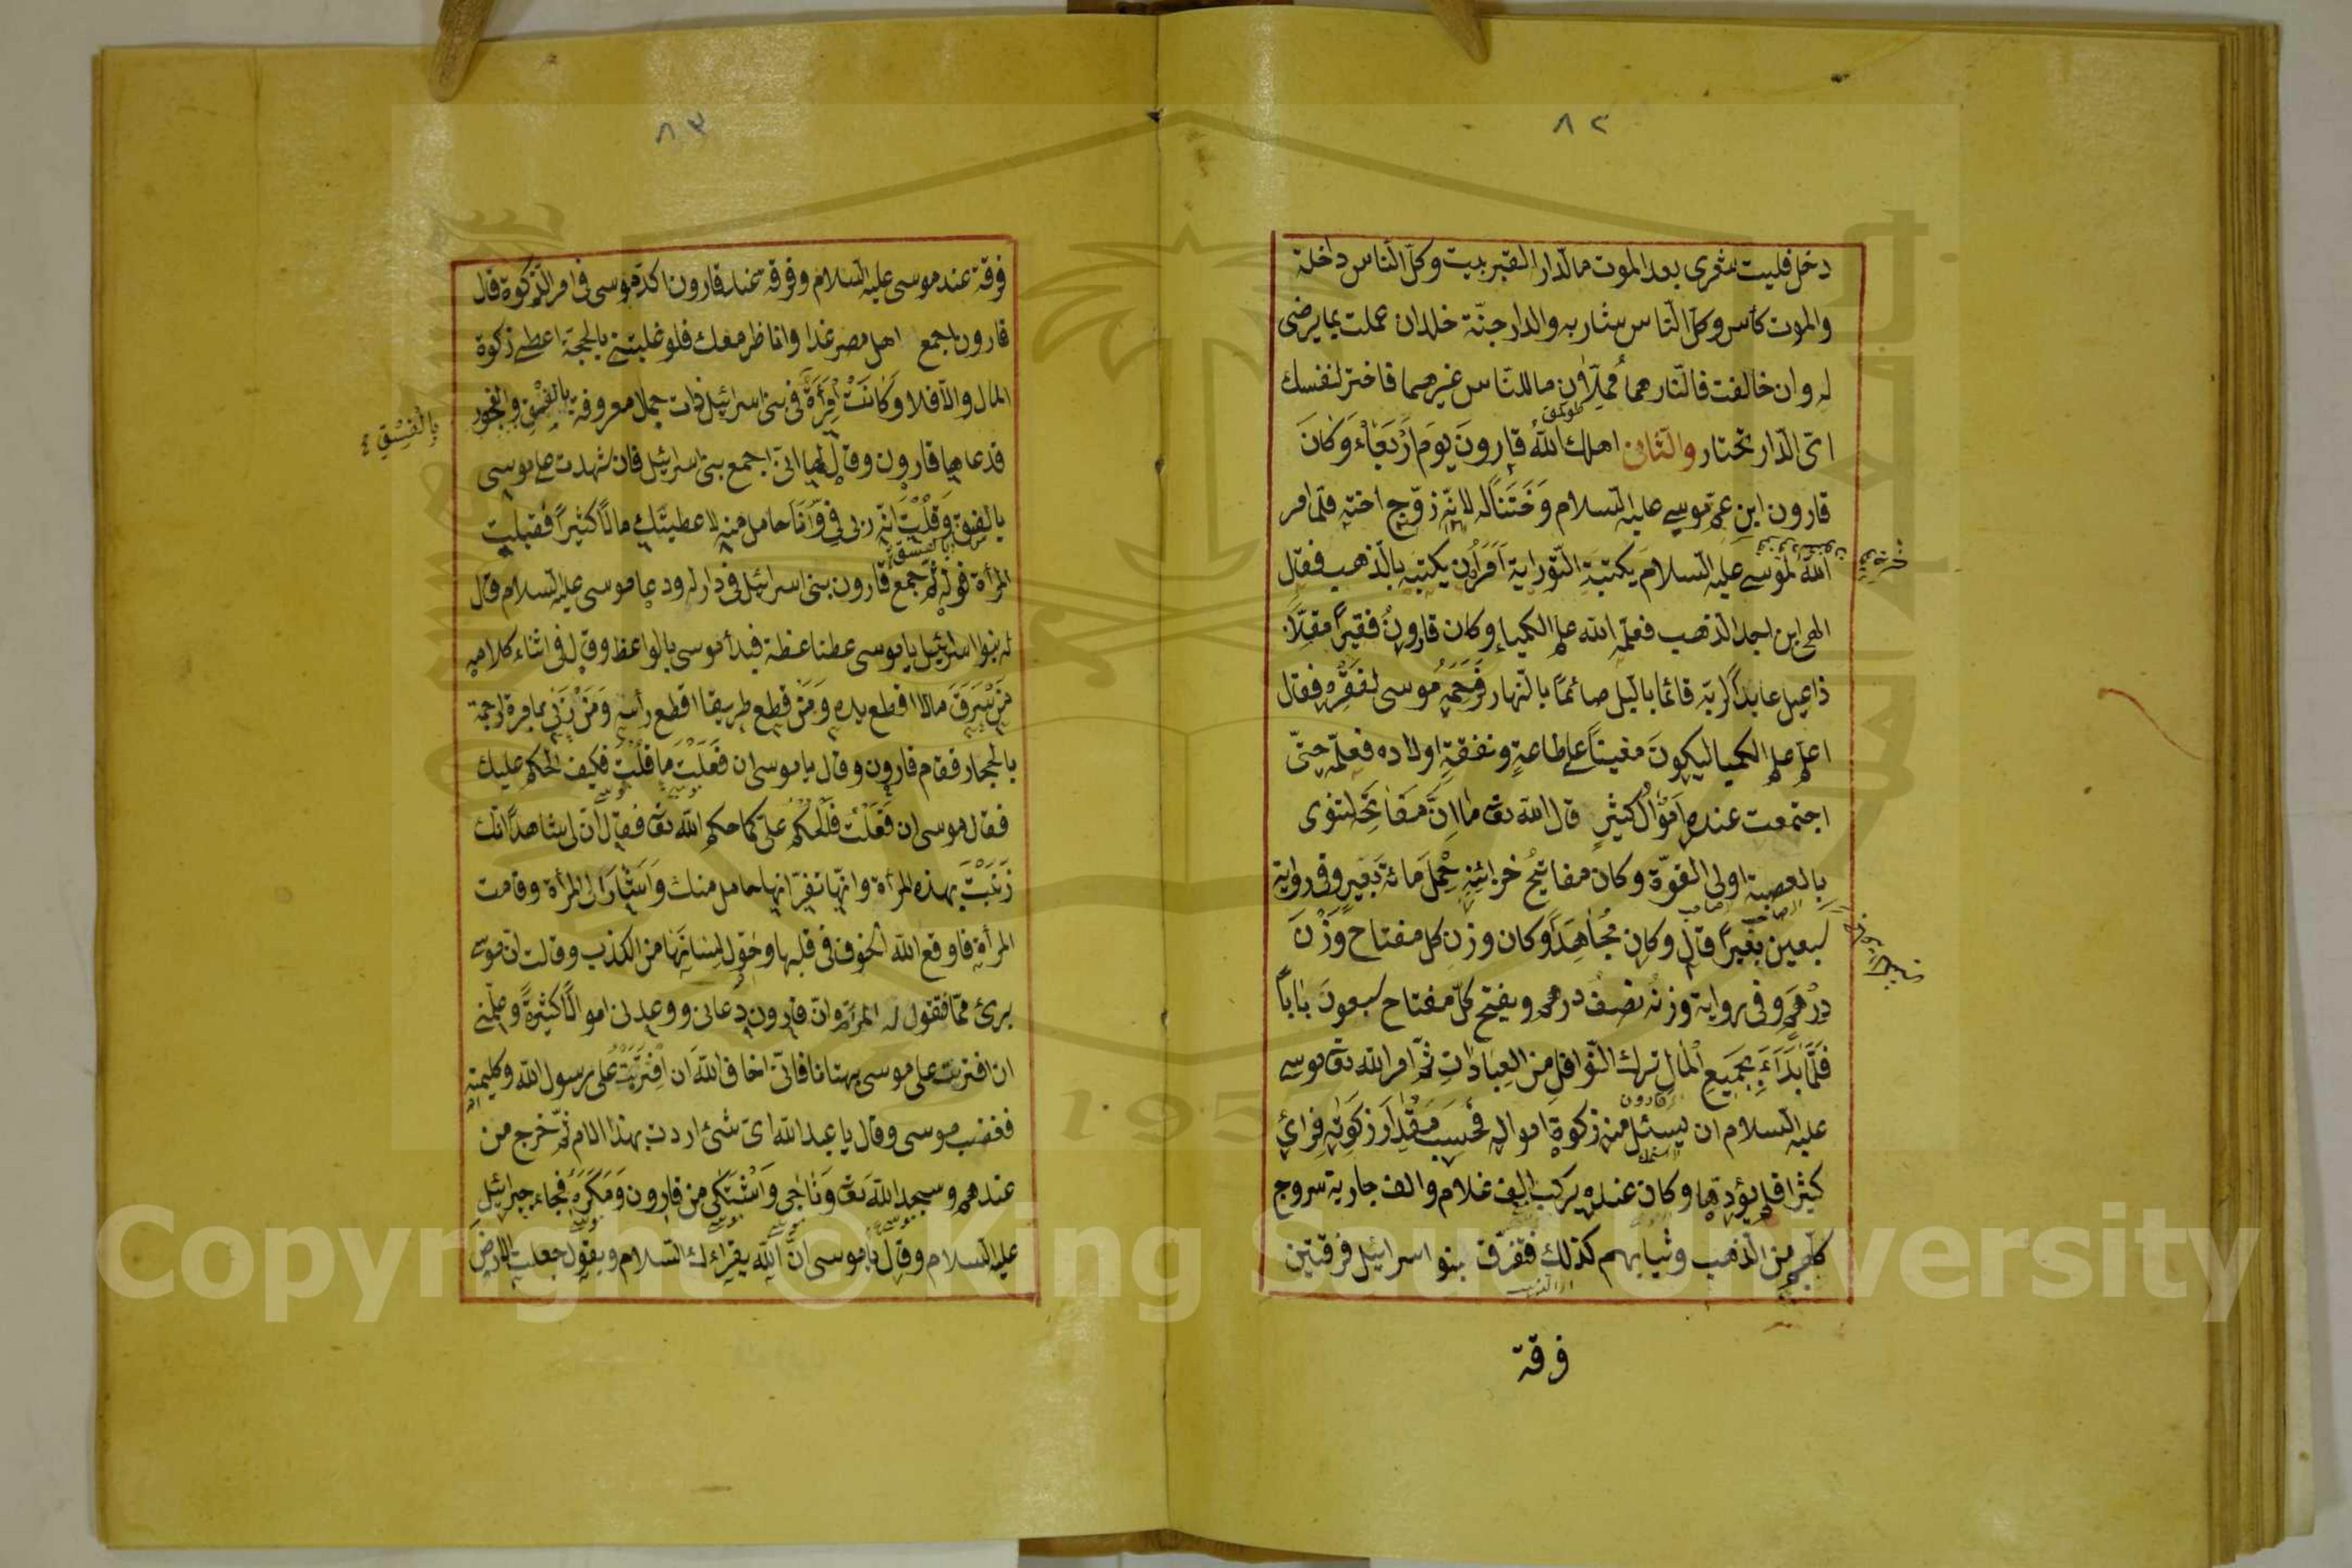 ٨٢
دخل فليت شعرى بعد الموت مالدار القبر بيت وكل الناس داخلة
والموت كأس وكل الناس شاربه والدار جنة خلدان عملت بما يرضى
له وان خالفت فالنار هما محلان ما للناس غيرهما فاختر لنفسك
اى الدار تختار والثانى اهلك الله قارون يوم اربعاء وكان
قارون ابن عم موسى عليه السلام وختنا له لانه زوج اخته فلما امر
الله لموسى عليه السلام يكتبة التوراية امر ان يكتبه بالذهب فقال
الهى اين اجد الذهب فعلمه الله علم الكمياء وكان قارون فقيرا مقلا
ذا عيل عابدا لربه قائما باليل صائما بالنهار فرحمه موسى لفقره فقال
اعلم علم الكميا ليكون مغينا على طاعة ونفقة اولاده فعلمه حتى
اجتمعت عنده اموال كثير قال الله تعا ما ان مفاتحه لتنوى
بالعصبة اولى القوة وكان مفاتيح خزائنه حمل مائة بعير وفى رواية
سبعين بعيرا قال وكان مجاهدا وكان وزن كل مفتاح وزن
درهم وفى رواية وزنه نصف درهم ويفتح كل مفتاح سبعون بابا
فلما بدأ بجميع المال ترك النوافل من العبادات ثم امر الله تعا موسى
عليه السلام ان يسئل منه زكوة امواله فحسب مقدار زكوته فرأى
كثيرا فلم يؤدها وكان عنده يركب الف غلام والف جارية سروج
كلهم من الذهب وثيابهم كذلك فتفرق بنو اسرائيل فرقتين
فرقة
٨٣
فرقة عند موسى عليه السلام وفرقة عند قارون اكد موسى فى امر الزكوة قال
قارون اجمع اهل مصر غدا وانا ظر معك فلو غلبتنى بالحجة اعطى زكوة
المال والا فلا وكانت امرأة فى بنى اسرائيل ذات جمل معروفة بالفسق والفجور
بالفسق
فدعاها قارون وقال لها انى اجمع بنى اسرائيل فان شهدت على موسى
بالفسق وقلت انه زنى بى وانا حامل منه لاعطينك مالا كثيرا فقبلت
المرأة قوله ثم جمع قارون بنى اسرائيل فى دار له ودعا موسى عليه السلام قال
له بنوا اسرائيل يا موسى عطنا عظة فبدأ موسى بالواعظ وقال فى اثناء كلامه
من سرق مالا اقطع يده ومن قطع طريقا اقطع رأسه ومن زنى بامرة ارجمه
بالحجار فقام قارون وقال يا موسى ان فعلت ما قلت فكيف الحكم عليك
فقال موسى ان فعلت فالحكم على كما حكم الله تعا فقال ان لى شاهدا انك
زنيت بهذه المرأة وانها تقر انها حامل منك واشار الى المرأة وقامت
المرأة فاوقع الله الخوف فى قلبها وحول لسانها من الكذب وقالت ان موسى
برئ مما فقول له المرأة وان قارون دعانى ووعدنى اموالا كثيرة وعلمنى
ان افتريت على موسى بهتانا فانى اخاف الله ان افتريت على رسول الله وكليمه
فغضب موسى وقال يا عبد الله اى شئ اردت بهذا الام ثم خرج من
عندهم وسجد الله تعا وناجى واشتكى من قارون ومكره فجاء جبرائيل
عليه السلام وقال يا موسى ان الله يقراءك السلام ويقول جعلت الارض
Copyright © King Saud University
1957